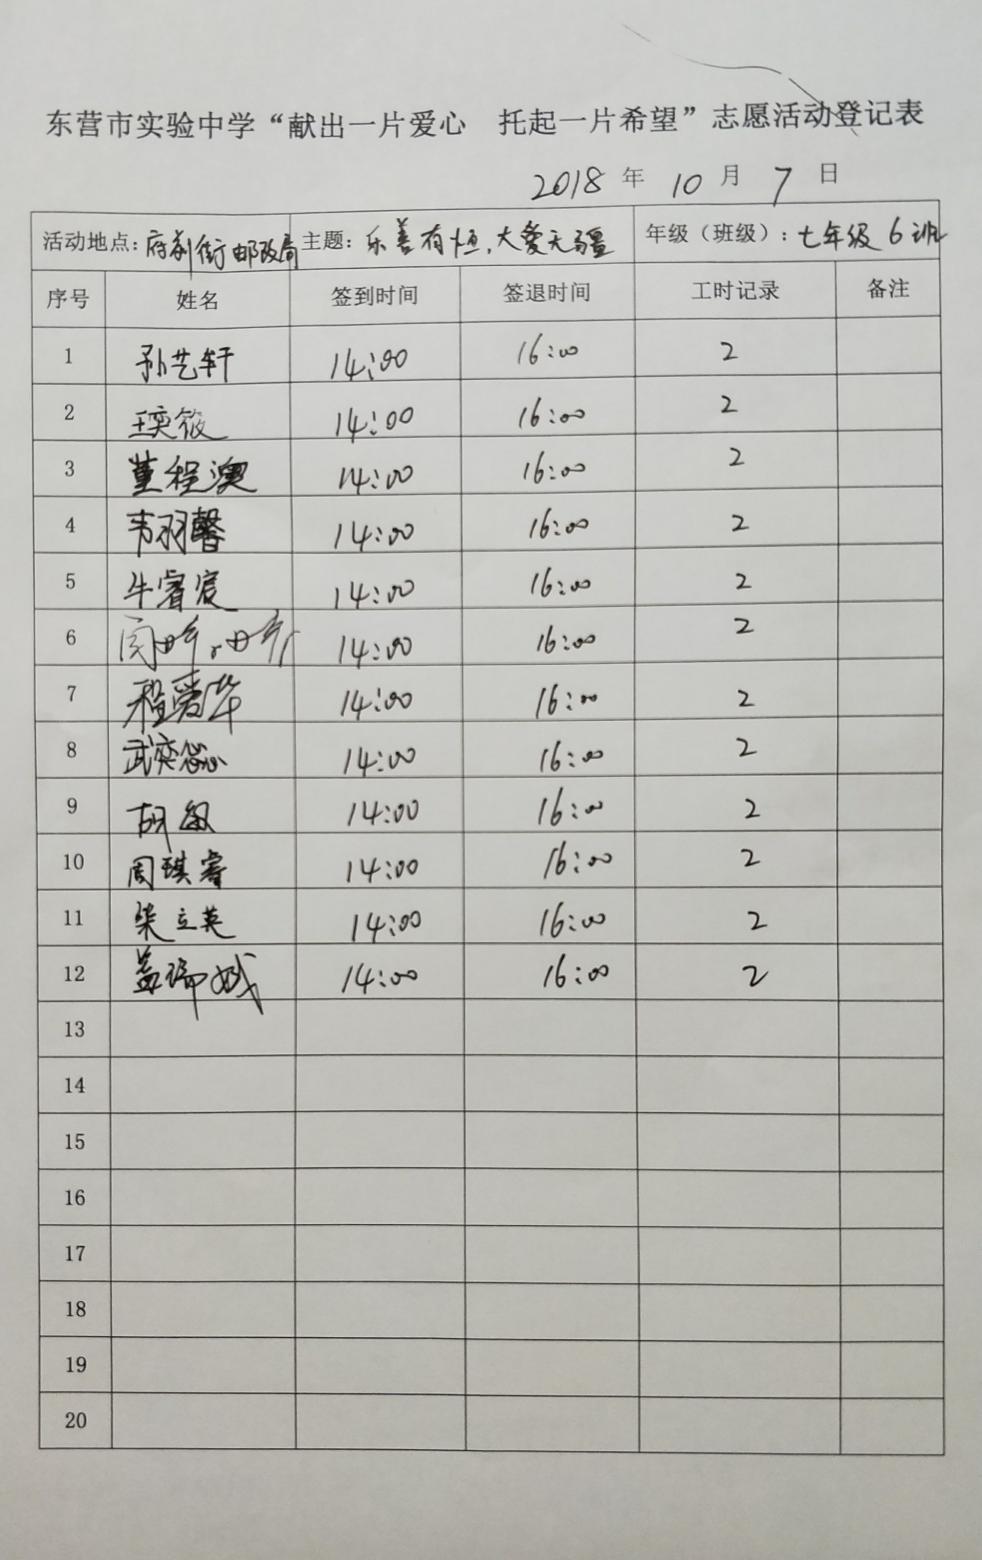 东营市实验中学“献出一片爱心 托起一片希望”志愿活动登记表
2018 年 10 月 7 日
活动地点：府前街邮政局 主题：乐善有恒，大爱无疆 年级（班级）：七年级 6 班
序号 姓名 签到时间 签退时间 工时记录 备注
1 孙艺轩 14:00 16:00 2
2 王奕筱 14:00 16:00 2
3 董程澳 14:00 16:00 2
4 韦羽馨 14:00 16:00 2
5 牛睿宸 14:00 16:00 2
6 14:00 16:00 2
7 程爱华 14:00 16:00 2
8 武奕 14:00 16:00 2
9 胡敏 14:00 16:00 2
10 周琪睿 14:00 16:00 2
11 柴立英 14:00 16:00 2
12 盖瑞 14:00 16:00 2
13
14
15
16
17
18
19
20